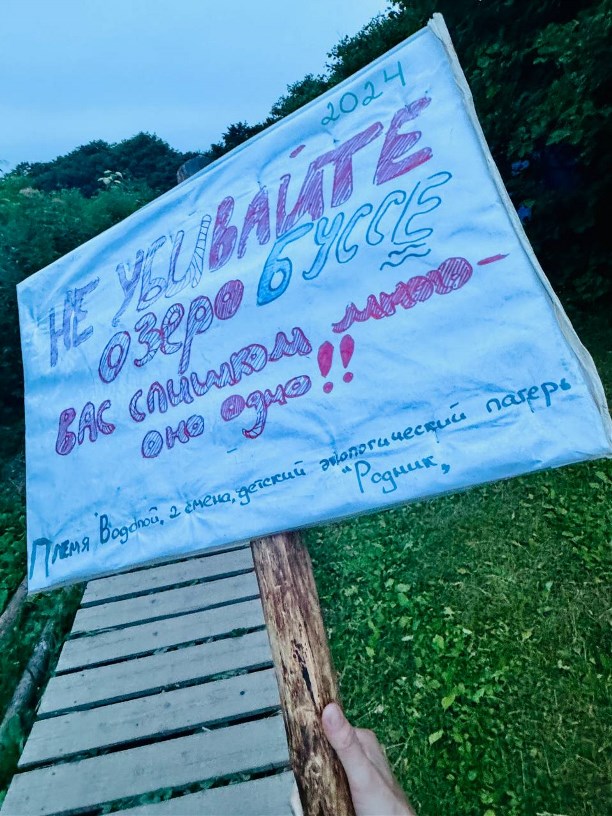 2024
НЕ УБИВАЙТЕ
ОЗЕРО БУССЕ
ВАС СЛИШКОМ МНОГО -
ОНО ОДНО!!
Племя Водопой, 2 смена, детский экологический лагерь
"Родник"